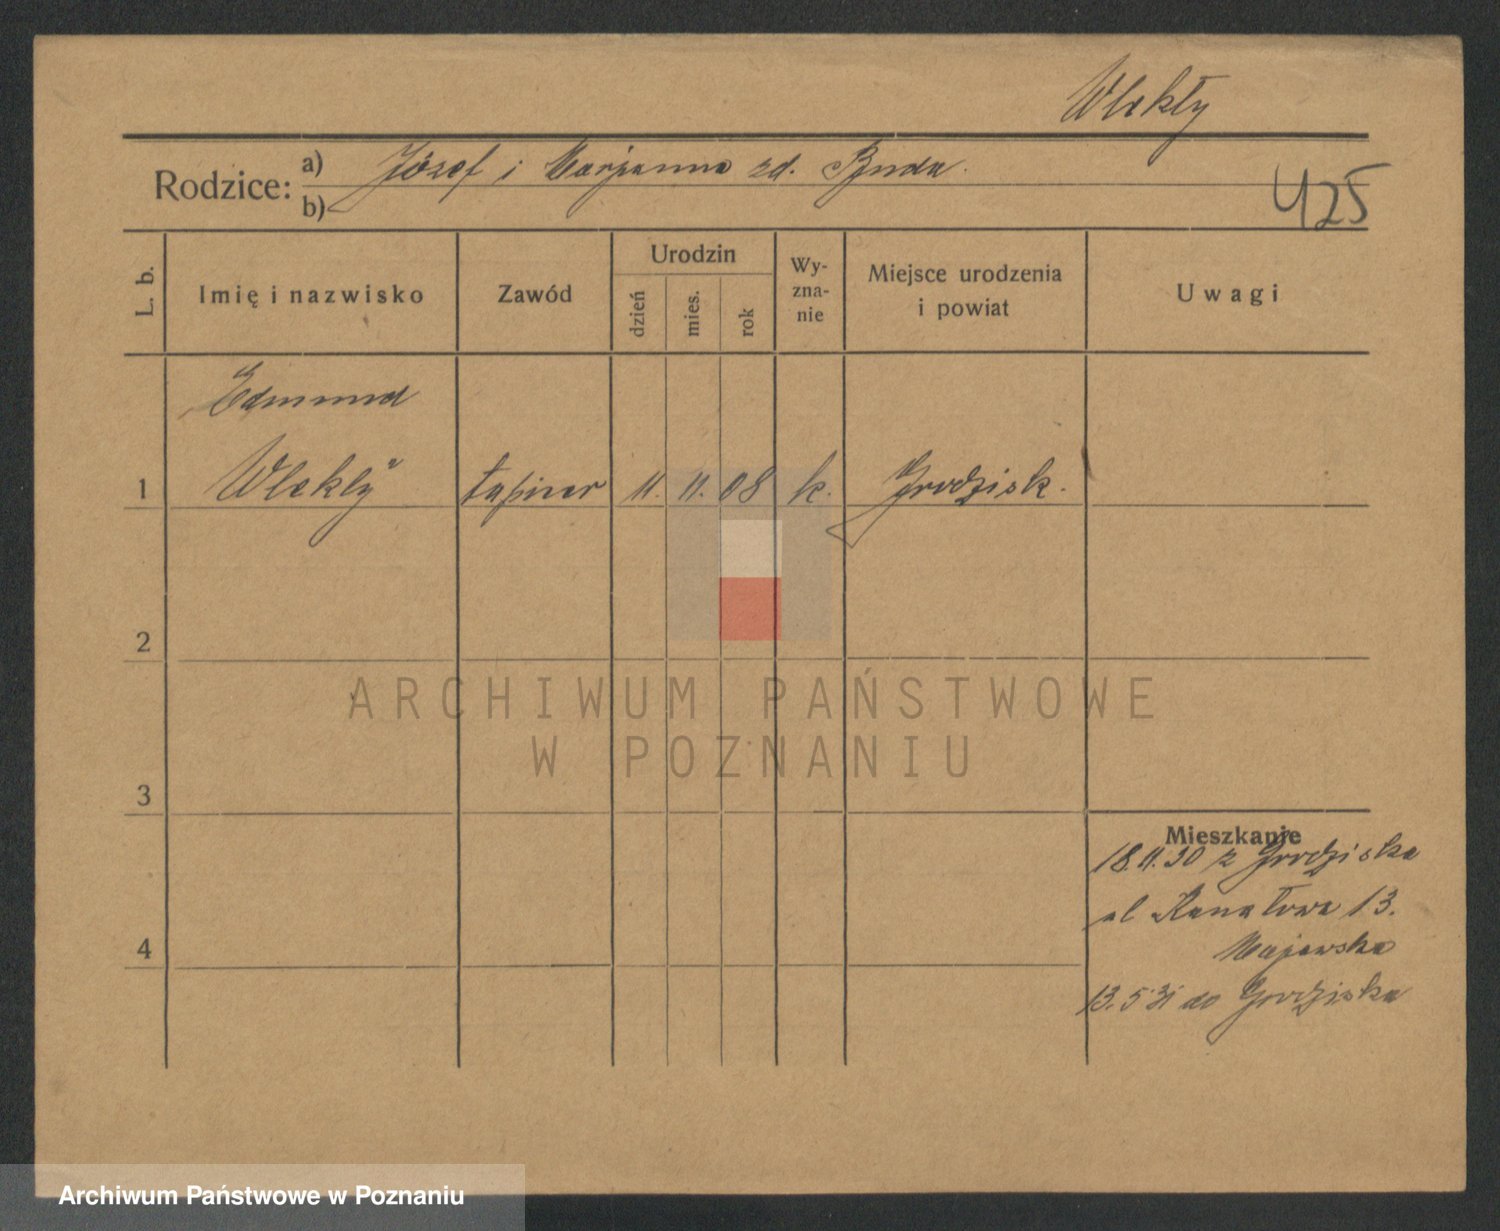 Wlekły
Rodzice: a) Józef i Marjanna zd. Buda.
b)
425
L. b.
Imię i nazwisko
Zawód
Urodzin
dzień
mies.
rok
Wy-
zna-
nie
Miejsce urodzenia
i powiat
Uwagi
Edmund
1 Wlekły tapicer 11. 11. 08 k. Grodzisk.
2
3
4
Mieszkanie
18.11.30 z Grodziska
ul Kanałowa 13.
Majewska
13.5 31 do Grodziska
ARCHIWUM PAŃSTWOWE
W POZNANIU
Archiwum Państwowe w Poznaniu